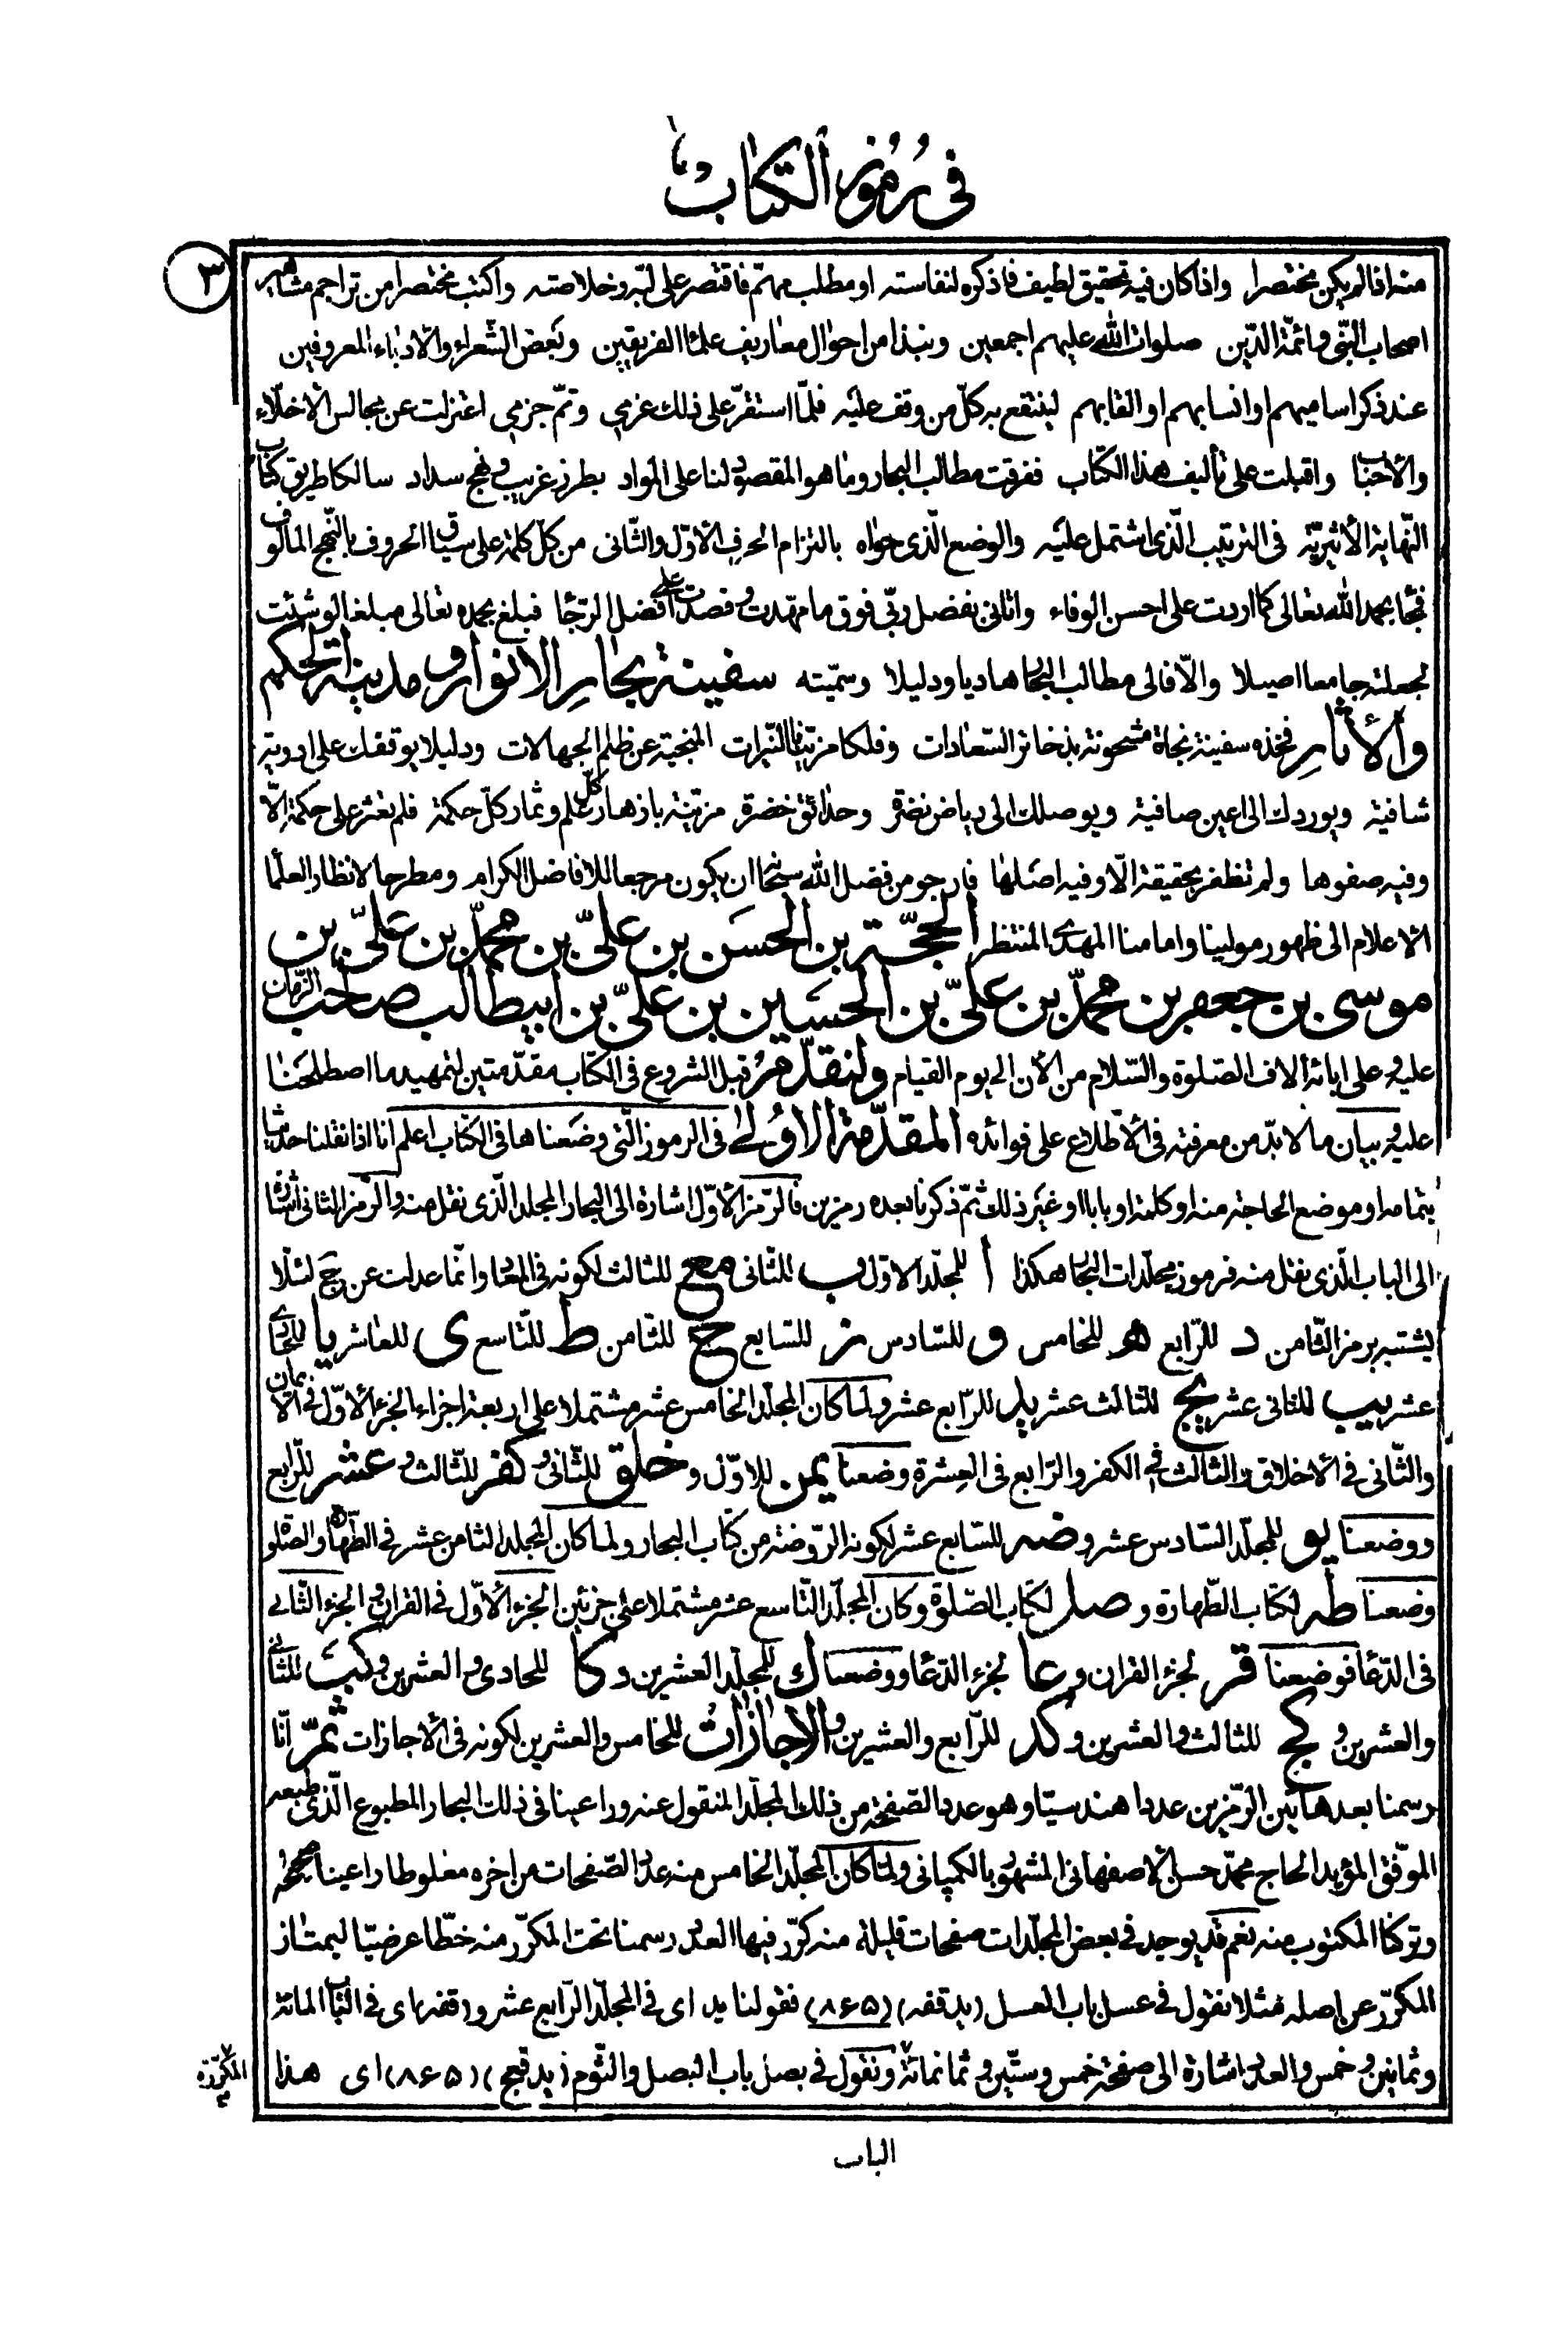 في رموز الكتاب
٣
منه اذا لم يكن مختصرا واذا كان فيه تحقيق لطيف فاذكره لنفاسته او مطلب مهمّ فاقتصر على لبّه وخلاصته واكتب مختصرا من تراجم مشاهير
اصحاب النّبى وائمّة الدّين صلوات الله عليهم اجمعين ونبذا من احوال معاريف علماء الفريقين وبعض الشّعراء والأدباء المعروفين
عند ذكر اساميهم او انسابهم او القابهم لينتفع به كلّ من وقف عليه فلمّا استقرّ على ذلك عزمي وتمّ جزمي اعتزلت عن مجالس الأخلّاء
والأحباب واقبلت على تأليف هذا الكتاب ففرقت مطالب البحار وما هو المقصود لنا على المواد بطرز غريب ونهج سداد سالكا طريق كتاب
النّهاية الأثيريّة في الترتيب الّذى اشتمل عليه والوضع الّذى حواه بالتزام الحرف الأوّل والثّانى من كلّ كلمة على سياق الحروف بالنّهج المألوف
فجاء بحمد الله تعالى كما اردت على احسن الوفاء واتانى بفضل ربّى فوق ما مهّدت وقصدت على افضل الرّجاء فبلغ بحمده تعالى مبلغا لو شئت
لجعلته جامعا اصيلا والّا فالى مطالب البحار هاديا ودليلا وسمّيته سفينة بحار الأنوار ومدينة الحكم
والأثار فخذه سفينة نجاة مشحونة بذخائر السّعادات وفلكا مزيّنا بالنّيرات المنجية عن ظلم الجهالات ودليلا يوقفك على ادوية
شافية ويوردك الى اعين صافية ويوصلك الى رياض نضرة وحدائق خضرة مزيّنة بازهار كلّ علم وثمار كلّ حكمة فلم تعثر على حكمة الّا
وفيه صفوها ولم تظفر بحقيقة الّا وفيه اصلها فارجو من فضل الله سبحانه ان يكون مرجعا للافاضل الكرام ومطرحا لانظار العلماء
الأعلام الى ظهور مولينا وامامنا المهدى المنتظر الحجّة بن الحسن بن علىّ بن محمّد بن علىّ بن
موسى بن جعفر بن محمّد بن علىّ بن الحسين بن علىّ بن ابيطالب صاحب الزّمان
عليه وعلى ابائه الاف الصّلوة والسّلام من الأن الى يوم القيام ولنقدّم قبل الشروع في الكتاب مقدّمتين لتمهيد ما اصطلحنا
عليه وبيان ما لا بدّ من معرفته في الأطلاع على فوائده المقدّمة الأولى في الرموز الّتى وضعناها في الكتاب اعلم انّا اذا نقلنا حديثا
بتمامه او موضع الحاجة منه او كلمة او بابا او غير ذلك ثمّ ذكرنا بعده رمزين فالرّمز الأوّل اشارة الى البحار المجلد الّذى نقل منه والرّمز الثانى اشارة
الى الباب الّذى نقل منه فرموز مجلّدات البحار هكذا أ للمجلّد الاوّل ب للثّانى مع للثالث لكونه في المعاد وانّما عدلت عن ج لئلّا
يشتبه برمز الثّامن د للرّابع هـ للخامس و للسّادس ز للسّابع ح للثّامن ط للتّاسع ى للعاشر يا للحادى
عشر يب للثانى عشر يج للثالث عشر يد للرّابع عشر ولمّا كان المجلّد الخامس عشر مشتملا على اربعة اجزاء الجزء الأوّل في الأيمان
والثّانى في الأخلاق والثالث في الكفر والرّابع في العِشرة وضعنا يمن للاوّل و خلق للثّانى و كفر للثّالث و عشر للرّابع
ووضعنا يو للمجلّد السّادس عشر و ضه للسّابع عشر لكونه الرّوضة من كتاب البحار ولمّا كان المجلّد الثامن عشر في الطّهارة والصّلوة
وضعنا طه لكتاب الطّهارة و صل لكتاب الصّلوة وكان المجلّد التّاسع عشر مشتملا على جزئين الجزء الأوّل في القران والجزء الثّانى
في الدّعا فوضعنا قر لجزء القران و عا لجزء الدّعا ووضعنا ك للمجلّد العشرين و كا للحادى والعشرين و كب للثّانى
والعشرين و كج للثالث والعشرين و كد للرّابع والعشرين والأجازات للخامس والعشرين لكونه في الأجازات ثمّ انّا
رسمنا بعد هاتين الرّمزين عددا هندسيّا وهو عدد الصّفحة من ذلك المجلّد المنقول عنه وراعينا في ذلك البحار المطبوع الّذى طبعه
الموفّق المؤيد الحاج محمّد حسن الأصفهانى المشهور بالكمپانى ولمّا كان المجلّد الخامس منه عدد الصّفحات من اخره مغلوطا راعينا صحيحه
وتركنا المكتوب منه نعم قد يوجد في بعض المجلّدات صفحات قليلة منه كرّر فيها العدد رسمنا تحت المكرّر منه خطّا عرضيّا ليمتاز
المكرّر عن اصله فمثلا نقول في عسل باب العسل (يد قفه) (٨۶۵) فقولنا يد اى في المجلّد الرّابع عشر و (قفه) اى في الباب المائة
وثمانين وخمس والعدد اشارة الى صفحة خمس وستّين وثمانمائة ونقول في بصل باب البصل والثّوم (يد قفح) (٨۶۵) اى هذا
المكرّرة
الباب